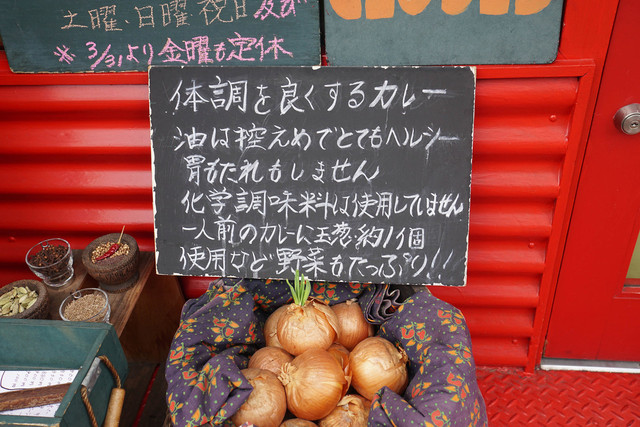 土曜、日曜 祝日 及び
※3/31より金曜も定休
CLOSED
体調を良くするカレー
油は控えめでとてもヘルシー
胃もたれもしません
化学調味料は使用してしません
一人前のカレーに玉葱約1個
使用など野菜もたっぷり!!